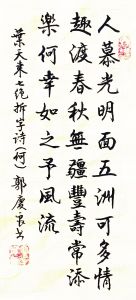 人慕光明面五洲可多情
趣渡春秋無疆豐壽常添
樂何幸如之予風流
葉天東七绝折字诗(柯)郭慶